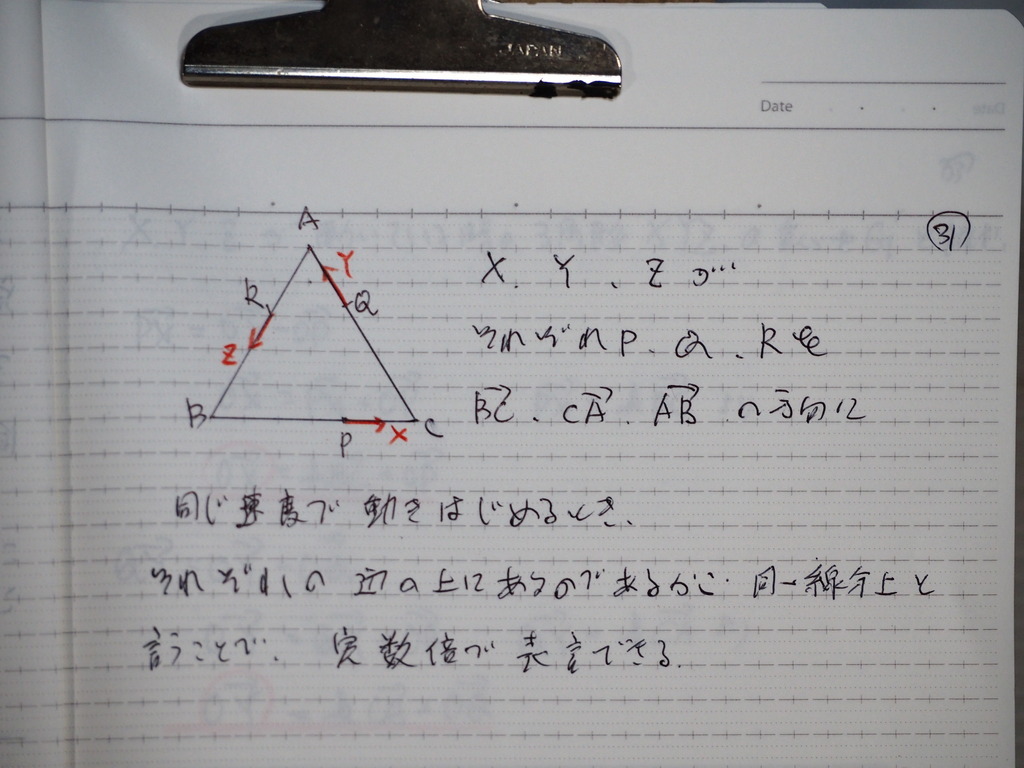 JAPAN
Date
31
A
Y
R
Q
Z
B
P
X
C
X、Y、Z が…
それぞれP、Q、Rを
BC、CA、ABの方向に
同じ速度で動きはじめるとき、
それぞれの辺の上にあるのであるから 同一線分上と
言うことで、実数倍で表言できる。